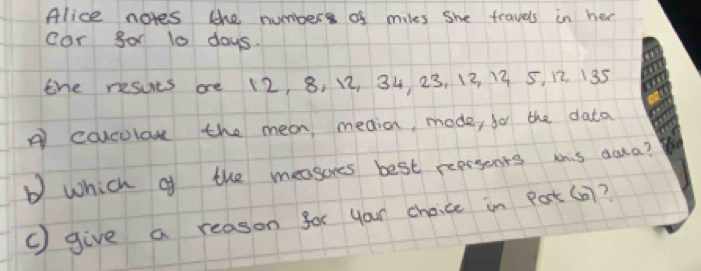 Alice notes the numbers of miles She travels in her
Car for 10 days.
the results are 12, 8, 12, 34, 23, 12, 12, 5, 12, 135
A) calculate the mean, median, mode, for the data
b) which of the measures best represents this data?
c) give a reason for your choice in Part (b)?